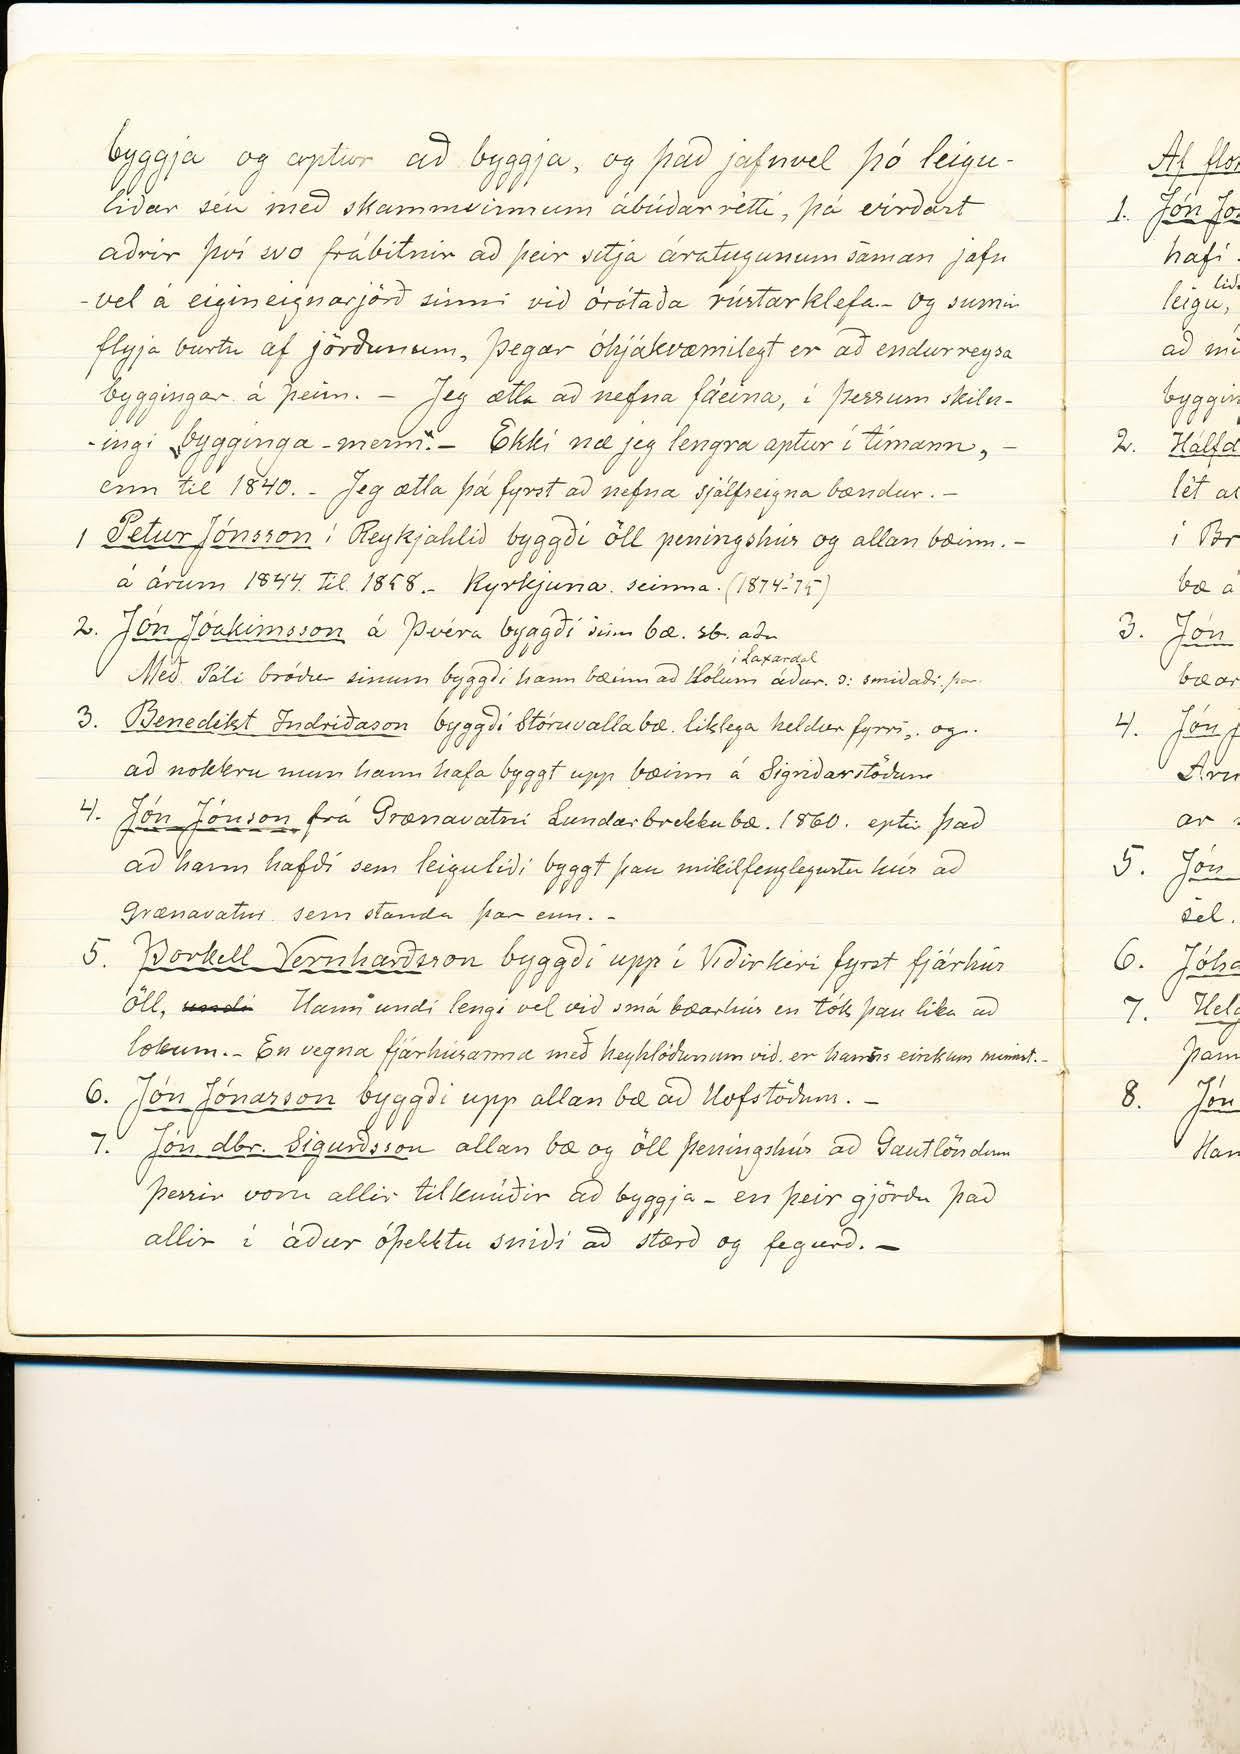 byggja og aptur að byggja, og það jafnvel þó leigu-
liðar séu með skammvinnum ábúðarrétti, þá virðast
aðrir því svo frábitnir að þeir sitja áratugunum saman jafn
-vel á eigineignarjörð sinni við órótaða rústarklefa.- og sumir
flyja burtu af jörðunum, þegar óhjákvæmilegt er að endurreysa
byggingar á þeim. - Jeg ætla að nefna fáeina, í þessum skiln-
-ingi „bygginga-menn“. - Ekki næ jeg lengra aptur í tímann, -
enn til 1840. - Jeg ætla þá fyrst að nefna sjálfseigna bændur. -
1 Petur Jónsson í Reykjahlíð byggði öll peningshús og allan bæinn. -
á árum 1844. til. 1858.- Kyrkjuna. seinna. (1874-'75)
2. Jón Jóakimsson á Þverá byggði sinn bæ. sb.
í Laxárdal
Með Páli bróður sinum byggði hann bæinn að Hólum áður. ɔ: smiðaði þar.
3. Benedikt Indriðason byggði Stóruvalla bæ. liklega heldur fyrri,. og.
að nokkru mun hann hafa byggt upp bæinn á Sigriðarstöðum
4. Jón Jónson frá Grænavatni Lundarbrekku bæ. 1860. eptir það
að hann hafði sem leiguliði byggt þau mikilfenglegustu hús að
Grænavatni sem standa þar enn. -
5. Þorkell Vernharðsson byggði upp í Viðirkeri fyrst fjárhús
öll, undi Hann undi lengi vel við smá bæarhús en tók þau lika að
lokum.- En vegna fjárhúsanna með heyhlöðunum við. er hanns einkum minnst.-
6. Jón Jónasson byggði upp allan bæ að Hofstöðum. -
7. Jón dbr. Sigurðsson allan bæ og öll peningshús að Gautlöndum
þessir voru allir tilknúðir að byggja - en þeir gjörðu það
allir í áður óþekktu sniði að stærð og fegurð. -
Af
1. Jón
hafi
leigu,
að
2.
lét
í
bæ á
3. Jón
bæar
4. Jón
ar
5. Jón
sel.
6.
7.
8. Jón